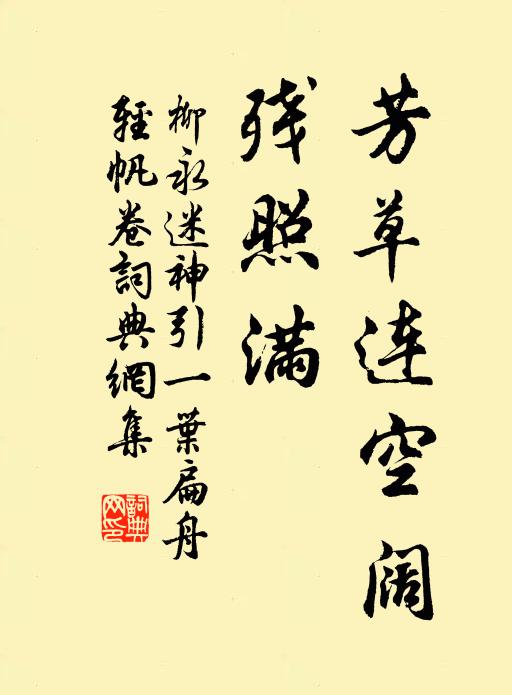 芳草连空阔
残照满
柳永迷神引一葉扁舟
輕帆卷詞典網集
詞典网印